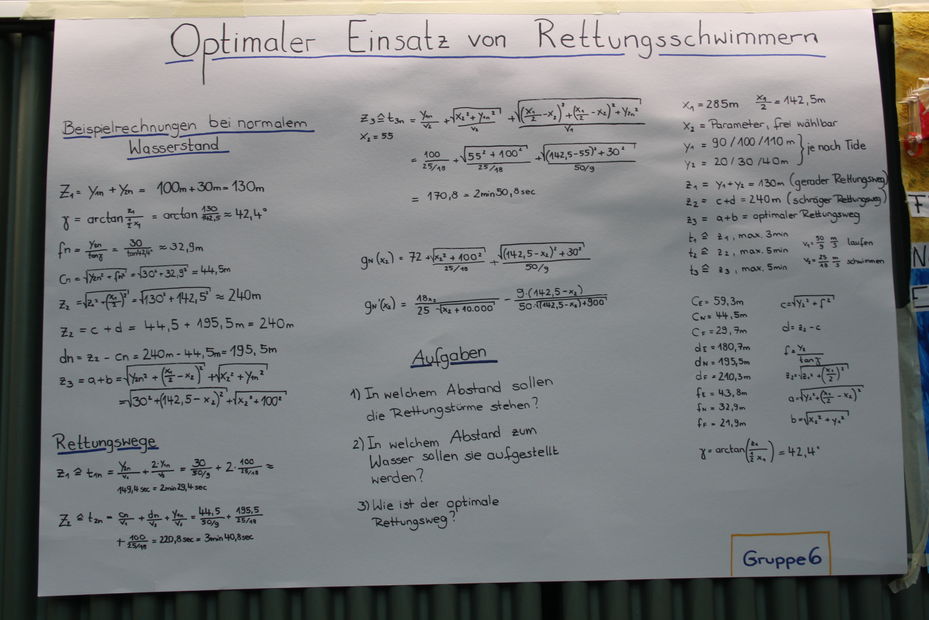 Optimaler Einsatz von Rettungsschwimmern
Beispielrechnungen bei normalem
Wasserstand
Z₁ = y₁ₙ + y₂ₙ = 100m + 30m = 130m
γ = arctan z₁/(½ x₁) = arctan 130/142,5 ≈ 42,4°
fn = y₂ₙ/tanγ = 30/tan42,4° ≈ 32,9m
Cn = √(y₂ₙ² + fn²) = √(30² + 32,9²) = 44,5m
Z₂ = √(z₁² + (x₁/2)²) = √(130² + 142,5²) ≈ 240m
Z₂ = c + d = 44,5 + 195,5m = 240m
dn = z₂ - cn = 240m - 44,5m = 195,5m
z₃ = a+b = √(y₂ₙ² + (x₁/2 - x₂)²) + √(x₂² + y₁ₙ²)
= √(30² + (142,5 - x₂)²) + √(x₂² + 100²)
Rettungswege
Z₁ ≙ t₁ₙ = + = 30/(50/9) + 2· 100/(25/18) ≈
149,4 sec = 2min 29,4 sec
Z₂ ≙ t₂ₙ = cn/v₁ + dn/v₂ + y₁ₙ/v₂ = 44,5/(50/9) + 195,5/(25/18)
+ 100/(25/18) = 220,8 sec = 3min 40,8 sec
z₃ ≙ t₃ₙ = y₁ₙ/v₂ + √(x₂² + y₁ₙ²)/v₂ + √((x₁/2 - x₂)² + (x₁/2 - x₂)² + y₂ₙ²)/v₁
x₂ = 55
= 100/(25/18) + √(55² + 100²)/(25/18) + √((142,5 - 55)² + 30²)/(50/9)
= 170,8 = 2min 50,8 sec
gN (x₂) = 72 + √(x₂² + 100²)/(25/18) + √((142,5 - x₂)² + 30²)/(50/9)
gN'(x₂) = 18x₂/(25·√(x₂² + 10.000)) - 9·(142,5 - x₂)/(50·√((142,5 - x₂)² + 900))
Aufgaben
1) In welchem Abstand sollen
die Rettungstürme stehen?
2) In welchem Abstand zum
Wasser sollen sie aufgestellt
werden?
3) Wie ist der optimale
Rettungsweg?
x₁ = 285m x₁/2 = 142,5m
x₂ = Parameter, frei wählbar
y₁ = 90/100/110m } je nach Tide
y₂ = 20/30/40m
z₁ = y₁+y₂ = 130m (gerader Rettungsweg)
z₂ = c+d = 240m (schräger Rettungsweg)
z₃ = a+b = optimaler Rettungsweg
t₁ ≙ z₁, max. 3min v₁ = 50/9 m/s laufen
t₂ ≙ z₂, max. 5min
t₃ ≙ z₃, max. 5min v₂ = 25/18 m/s schwimmen
CE = 59,3m c = √(y₂² + f²)
CN = 44,5m
CF = 29,7m d = z₂ - c
dE = 180,7m
dN = 195,5m f = y₂/tanγ
dF = 210,3m z₂ = √(z₁² + (x₁/2)²)
fE = 43,8m a = √(y₂² + (x₁/2 - x₂)²)
fN = 32,9m
fF = 21,9m b = √(x₂² + y₁²)
γ = arctan(z₁/(½ x₁)) = 42,4°
Gruppe 6